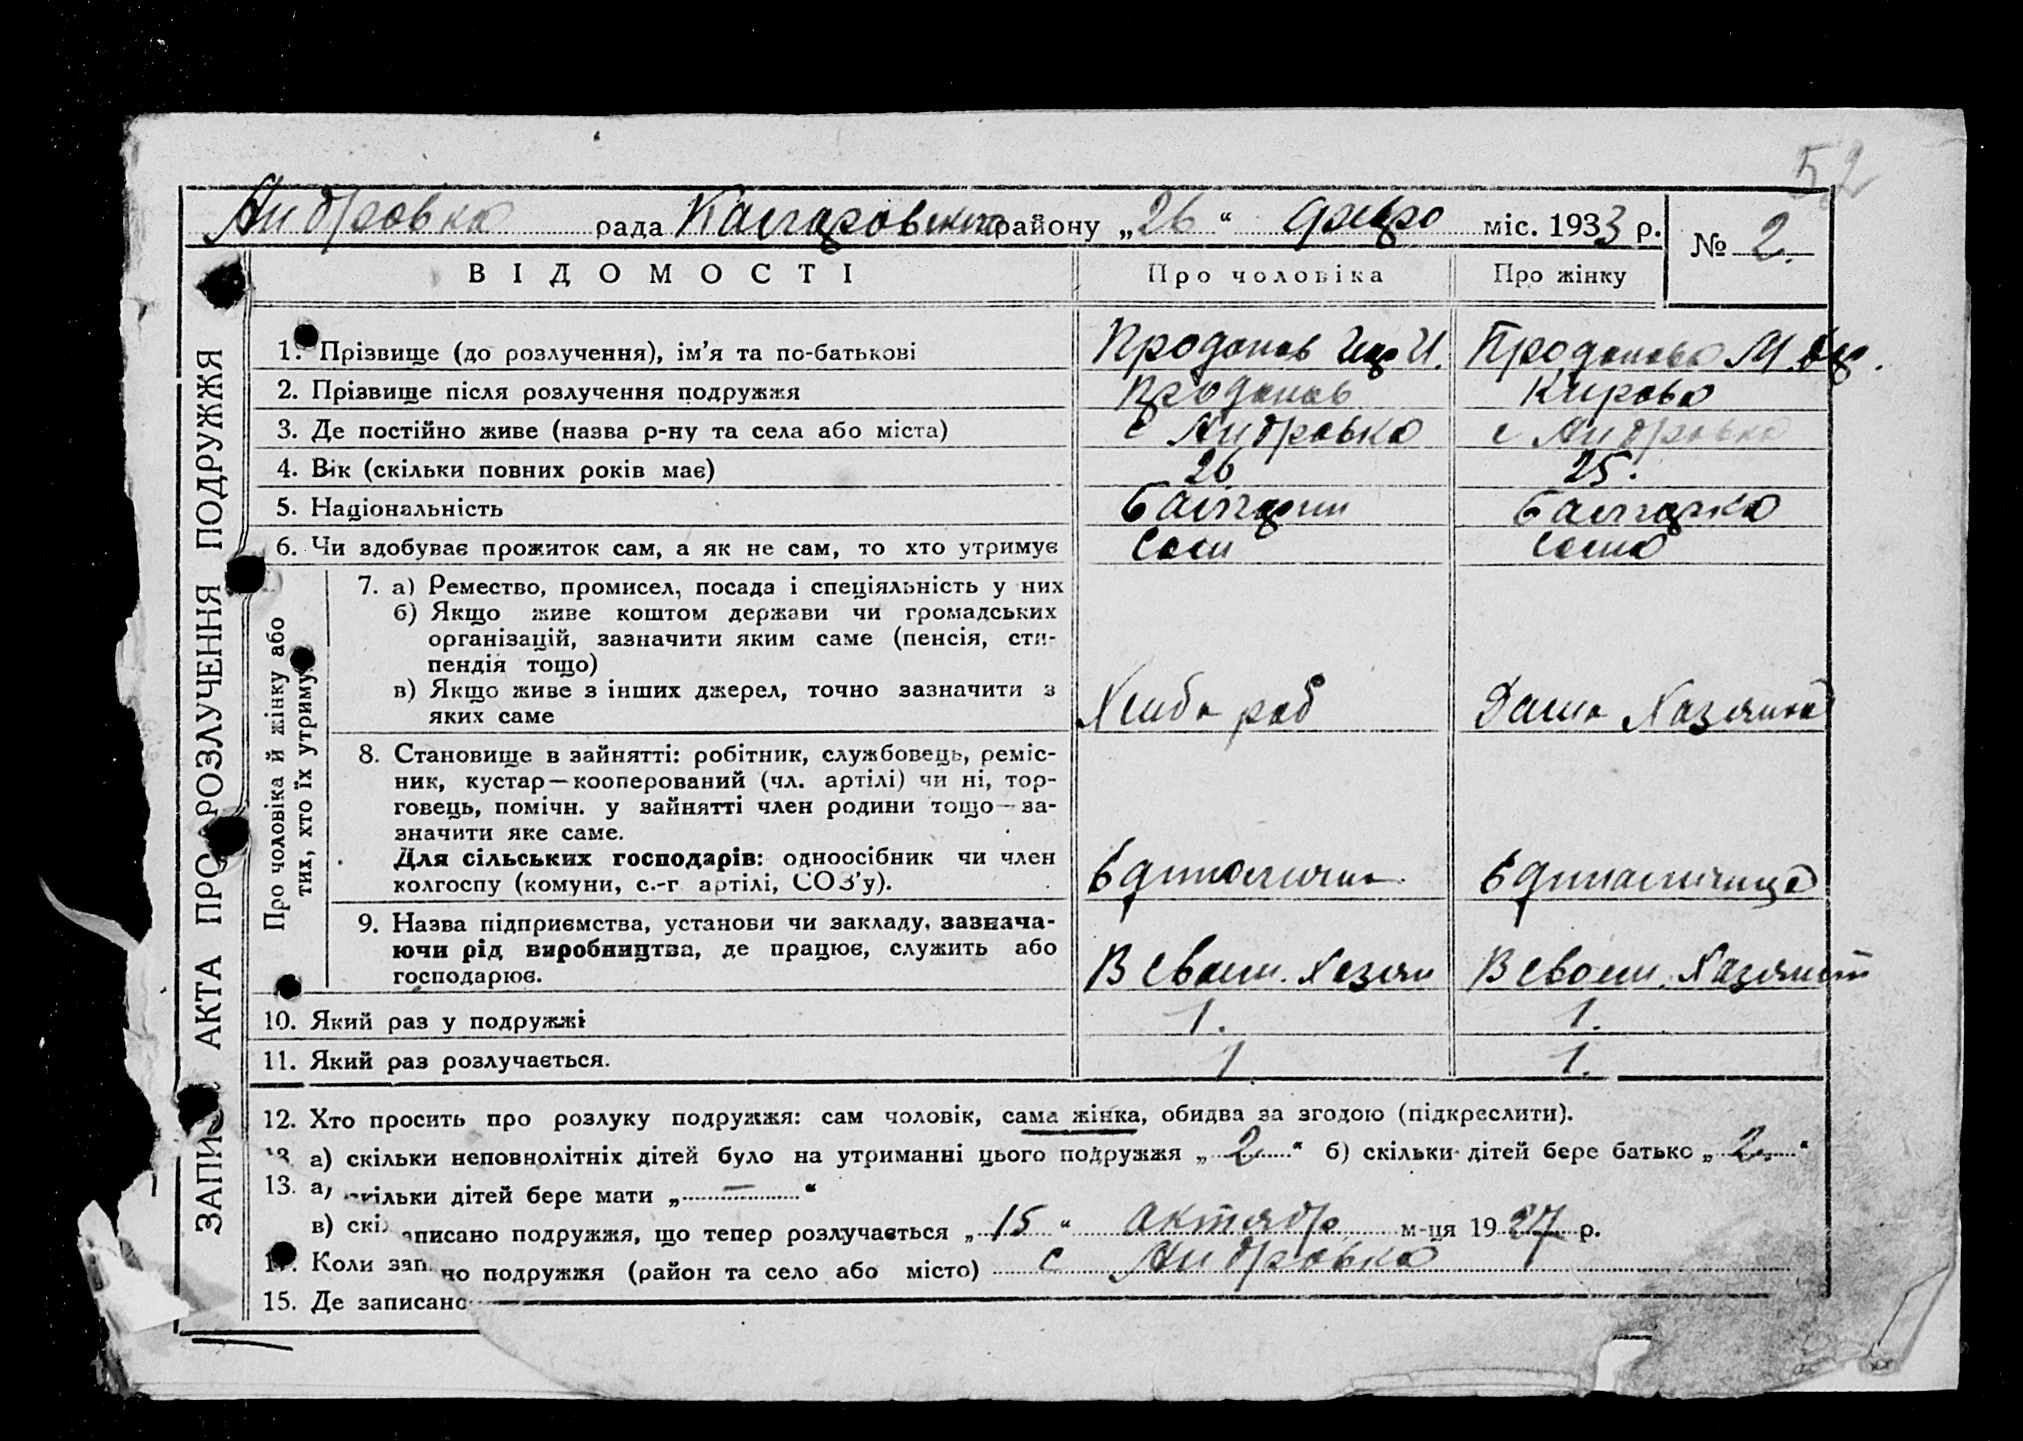 52
Андровка рада районну „26“ февро міс. 1933 р.
№ 2.
ЗАПИС АКТА ПРО РОЗЛУЧЕННЯ ПОДРУЖЖЯ
ВІДОМОСТІ Про чоловіка Про жінку
1. Прізвище (до розлучення), ім’я та по-батькові Проданов И. Проданова М.
2. Прізвище після розлучення подружжя Проданов Кирова
3. Де постійно живе (назва р-ну та села або міста) с Андровка с Андровка
4. Вік (скільки повних років має) 26 25.
5. Національність болгарин болгарка
6. Чи здобуває прожиток сам, а як не сам, то хто утримує Сам сама
Про чоловіка й жінку або
тих, хто їх утримує
7. а) Ремество, промисел, посада і спеціяльність у них
б) Якщо живе коштом держави чи громадських
організацій, зазначити яким саме (пенсія, сти-
пендія тощо)
в) Якщо живе з інших джерел, точно зазначити з
яких саме Хлибо роб Дома
8. Становище в зайнятті: робітник, службовець, реміс-
ник, кустар—кооперований (чл. артілі) чи ні, тор-
говець, помічн. у зайнятті член родини тощо—за-
значити яке саме.
Для сільських господарів: одноосібник чи член
колгоспу (комуни, с.-г артілі, СОЗ’у).
9. Назва підприємства, установи чи закладу, зазнача-
ючи рід виробництва, де працює, служить або
господарює. В своем. Хозяи В своем.
10. Який раз у подружжі 1. 1.
11. Який раз розлучається. 1 1.
12. Хто просить про розлуку подружжя: сам чоловік, сама жінка, обидва за згодою (підкреслити).
а) скільки неповнолітніх дітей було на утриманні цього подружжя „2“ б) скільки дітей бере батько „2.“
13. а) скільки дітей бере мати „—“
в) скі
записано подружжя, що тепер розлучається „15“ октябр м-ця 1927 р.
Коли зап
но подружжя (район та село або місто) с Андровка
15. Де записано